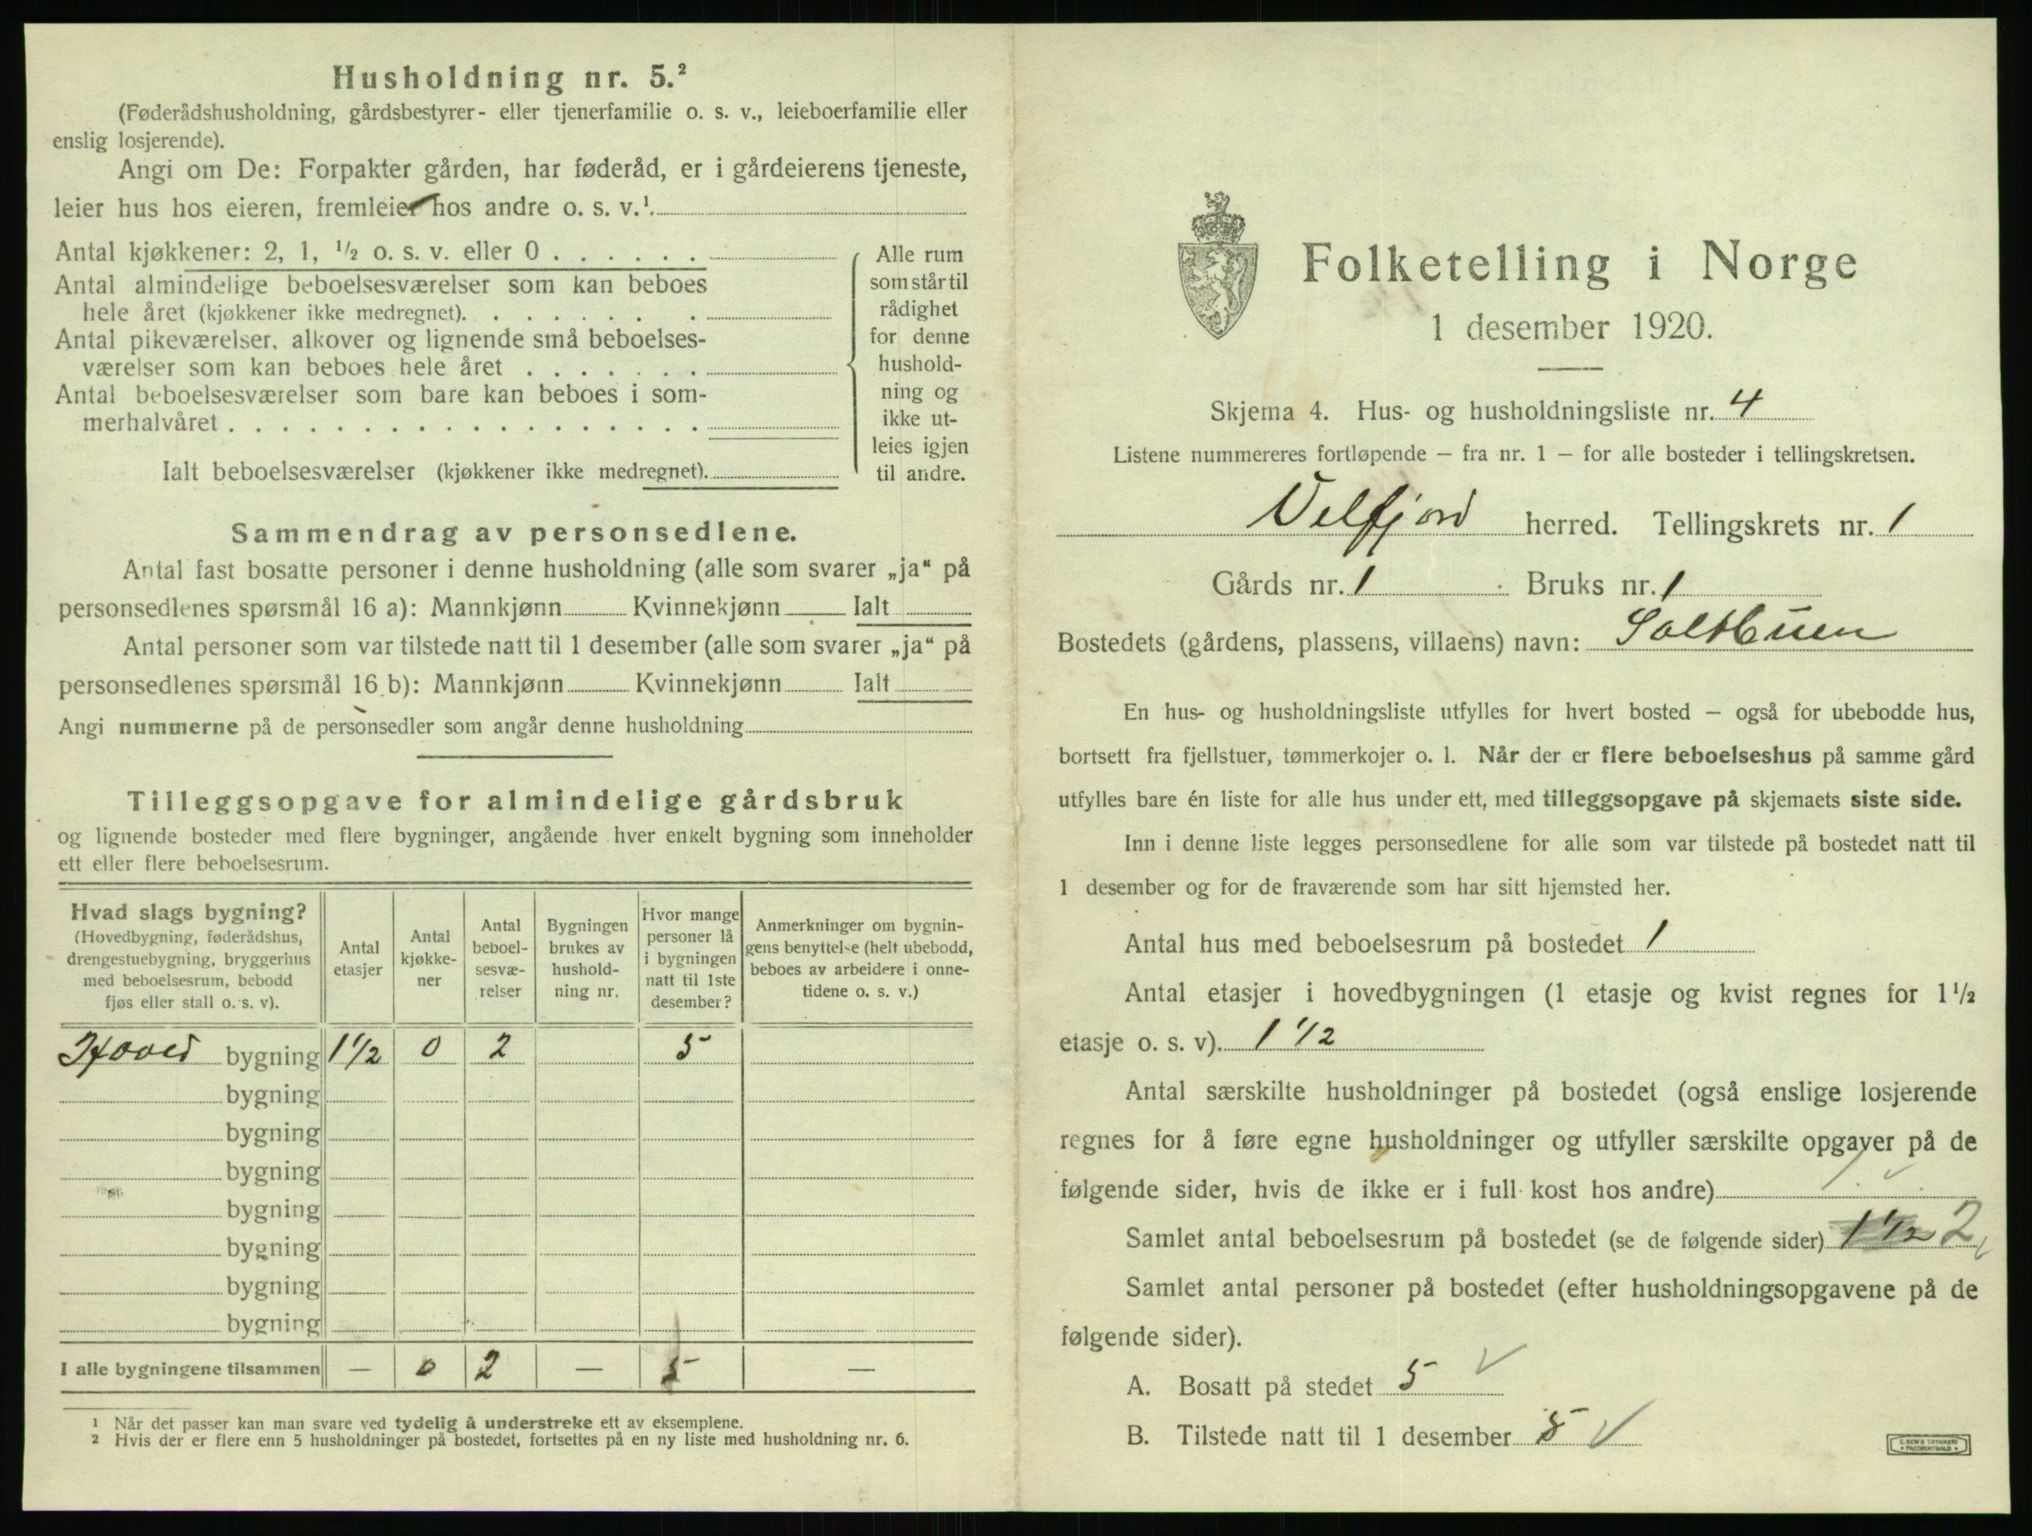 Husholdning nr. 5.²
(Føderådshusholdning, gårdsbestyrer- eller tjenerfamilie o. s. v., leieboerfamilie eller
enslig losjerende).
Angi om De: Forpakter gården, har føderåd, er i gårdeierens tjeneste,
leier hus hos eieren, fremleier hos andre o. s. v.¹
Antal kjøkkener: 2, 1, ½ o. s. v. eller 0 . . . . . .
Antal almindelige beboelsesværelser som kan beboes
hele året (kjøkkener ikke medregnet). . . . . . . .
Antal pikeværelser, alkover og lignende små beboelses-
værelser som kan beboes hele året . . . . . . .
Antal beboelsesværelser som bare kan beboes i som-
merhalvåret . . . . . . . . . . . . . . . . . .
Ialt beboelsesværelser (kjøkkener ikke medregnet).
Alle rum
som står til
rådighet
for denne
hushold-
ning og
ikke ut-
leies igjen
til andre.
Sammendrag av personsedlene.
Antal fast bosatte personer i denne husholdning (alle som svarer „ja“ på
personsedlenes spørsmål 16 a): Mannkjønn Kvinnekjønn Ialt
Antal personer som var tilstede natt til 1 desember (alle som svarer „ja“ på
personsedlenes spørsmål 16 b): Mannkjønn Kvinnekjønn Ialt
Angi nummerne på de personsedler som angår denne husholdning
Tilleggsopgave for almindelige gårdsbruk
og lignende bosteder med flere bygninger, angående hver enkelt bygning som inneholder
ett eller flere beboelsesrum.
Hvad slags bygning?
(Hovedbygning, føderådshus,
drengestuebygning, bryggerhus
med beboelsesrum, bebodd
fjøs eller stall o. s. v).
Antal
etasjer
Antal
kjøkke-
ner
Antal
beboel-
sesvæ-
relser
Bygningen
brukes av
hushold-
ning nr.
Hvor mange
personer lå
i bygningen
natt til 1ste
desember?
Anmerkninger om bygnin-
gens benyttelse (helt ubebodd,
beboes av arbeidere i onne-
tidene o. s. v.)
Hoved bygning 1 1/2 0 2 5
bygning
bygning
bygning
bygning
bygning
bygning
bygning
I alle bygningene tilsammen — 0 2 — 5 —
¹ Når det passer kan man svare ved tydelig å understreke ett av eksemplene.
² Hvis der er flere enn 5 husholdninger på bostedet, fortsettes på en ny liste med husholdning nr. 6.
Folketelling i Norge
1 desember 1920.
Skjema 4. Hus- og husholdningsliste nr. 4
Listene nummereres fortløpende — fra nr. 1 — for alle bosteder i tellingskretsen.
Velfjord herred. Tellingskrets nr. 1
Gårds nr. 1 Bruks nr. 1
Bostedets (gårdens, plassens, villaens) navn:
En hus- og husholdningsliste utfylles for hvert bosted — også for ubebodde hus,
bortsett fra fjellstuer, tømmerkojer o. l. Når der er flere beboelseshus på samme gård
utfylles bare én liste for alle hus under ett, med tilleggsopgave på skjemaets siste side.
Inn i denne liste legges personsedlene for alle som var tilstede på bostedet natt til
1 desember og for de fraværende som har sitt hjemsted her.
Antal hus med beboelsesrum på bostedet 1
Antal etasjer i hovedbygningen (1 etasje og kvist regnes for 1½
etasje o. s. v). 1 1/2
Antal særskilte husholdninger på bostedet (også enslige losjerende
regnes for å føre egne husholdninger og utfyller særskilte opgaver på de
følgende sider, hvis de ikke er i full kost hos andre) 1. ✓.
Samlet antal beboelsesrum på bostedet (se de følgende sider) 1 1/2 2 ✓
Samlet antal personer på bostedet (efter husholdningsopgavene på de
følgende sider).
A. Bosatt på stedet 5 ✓
B. Tilstede natt til 1 desember 5 ✓